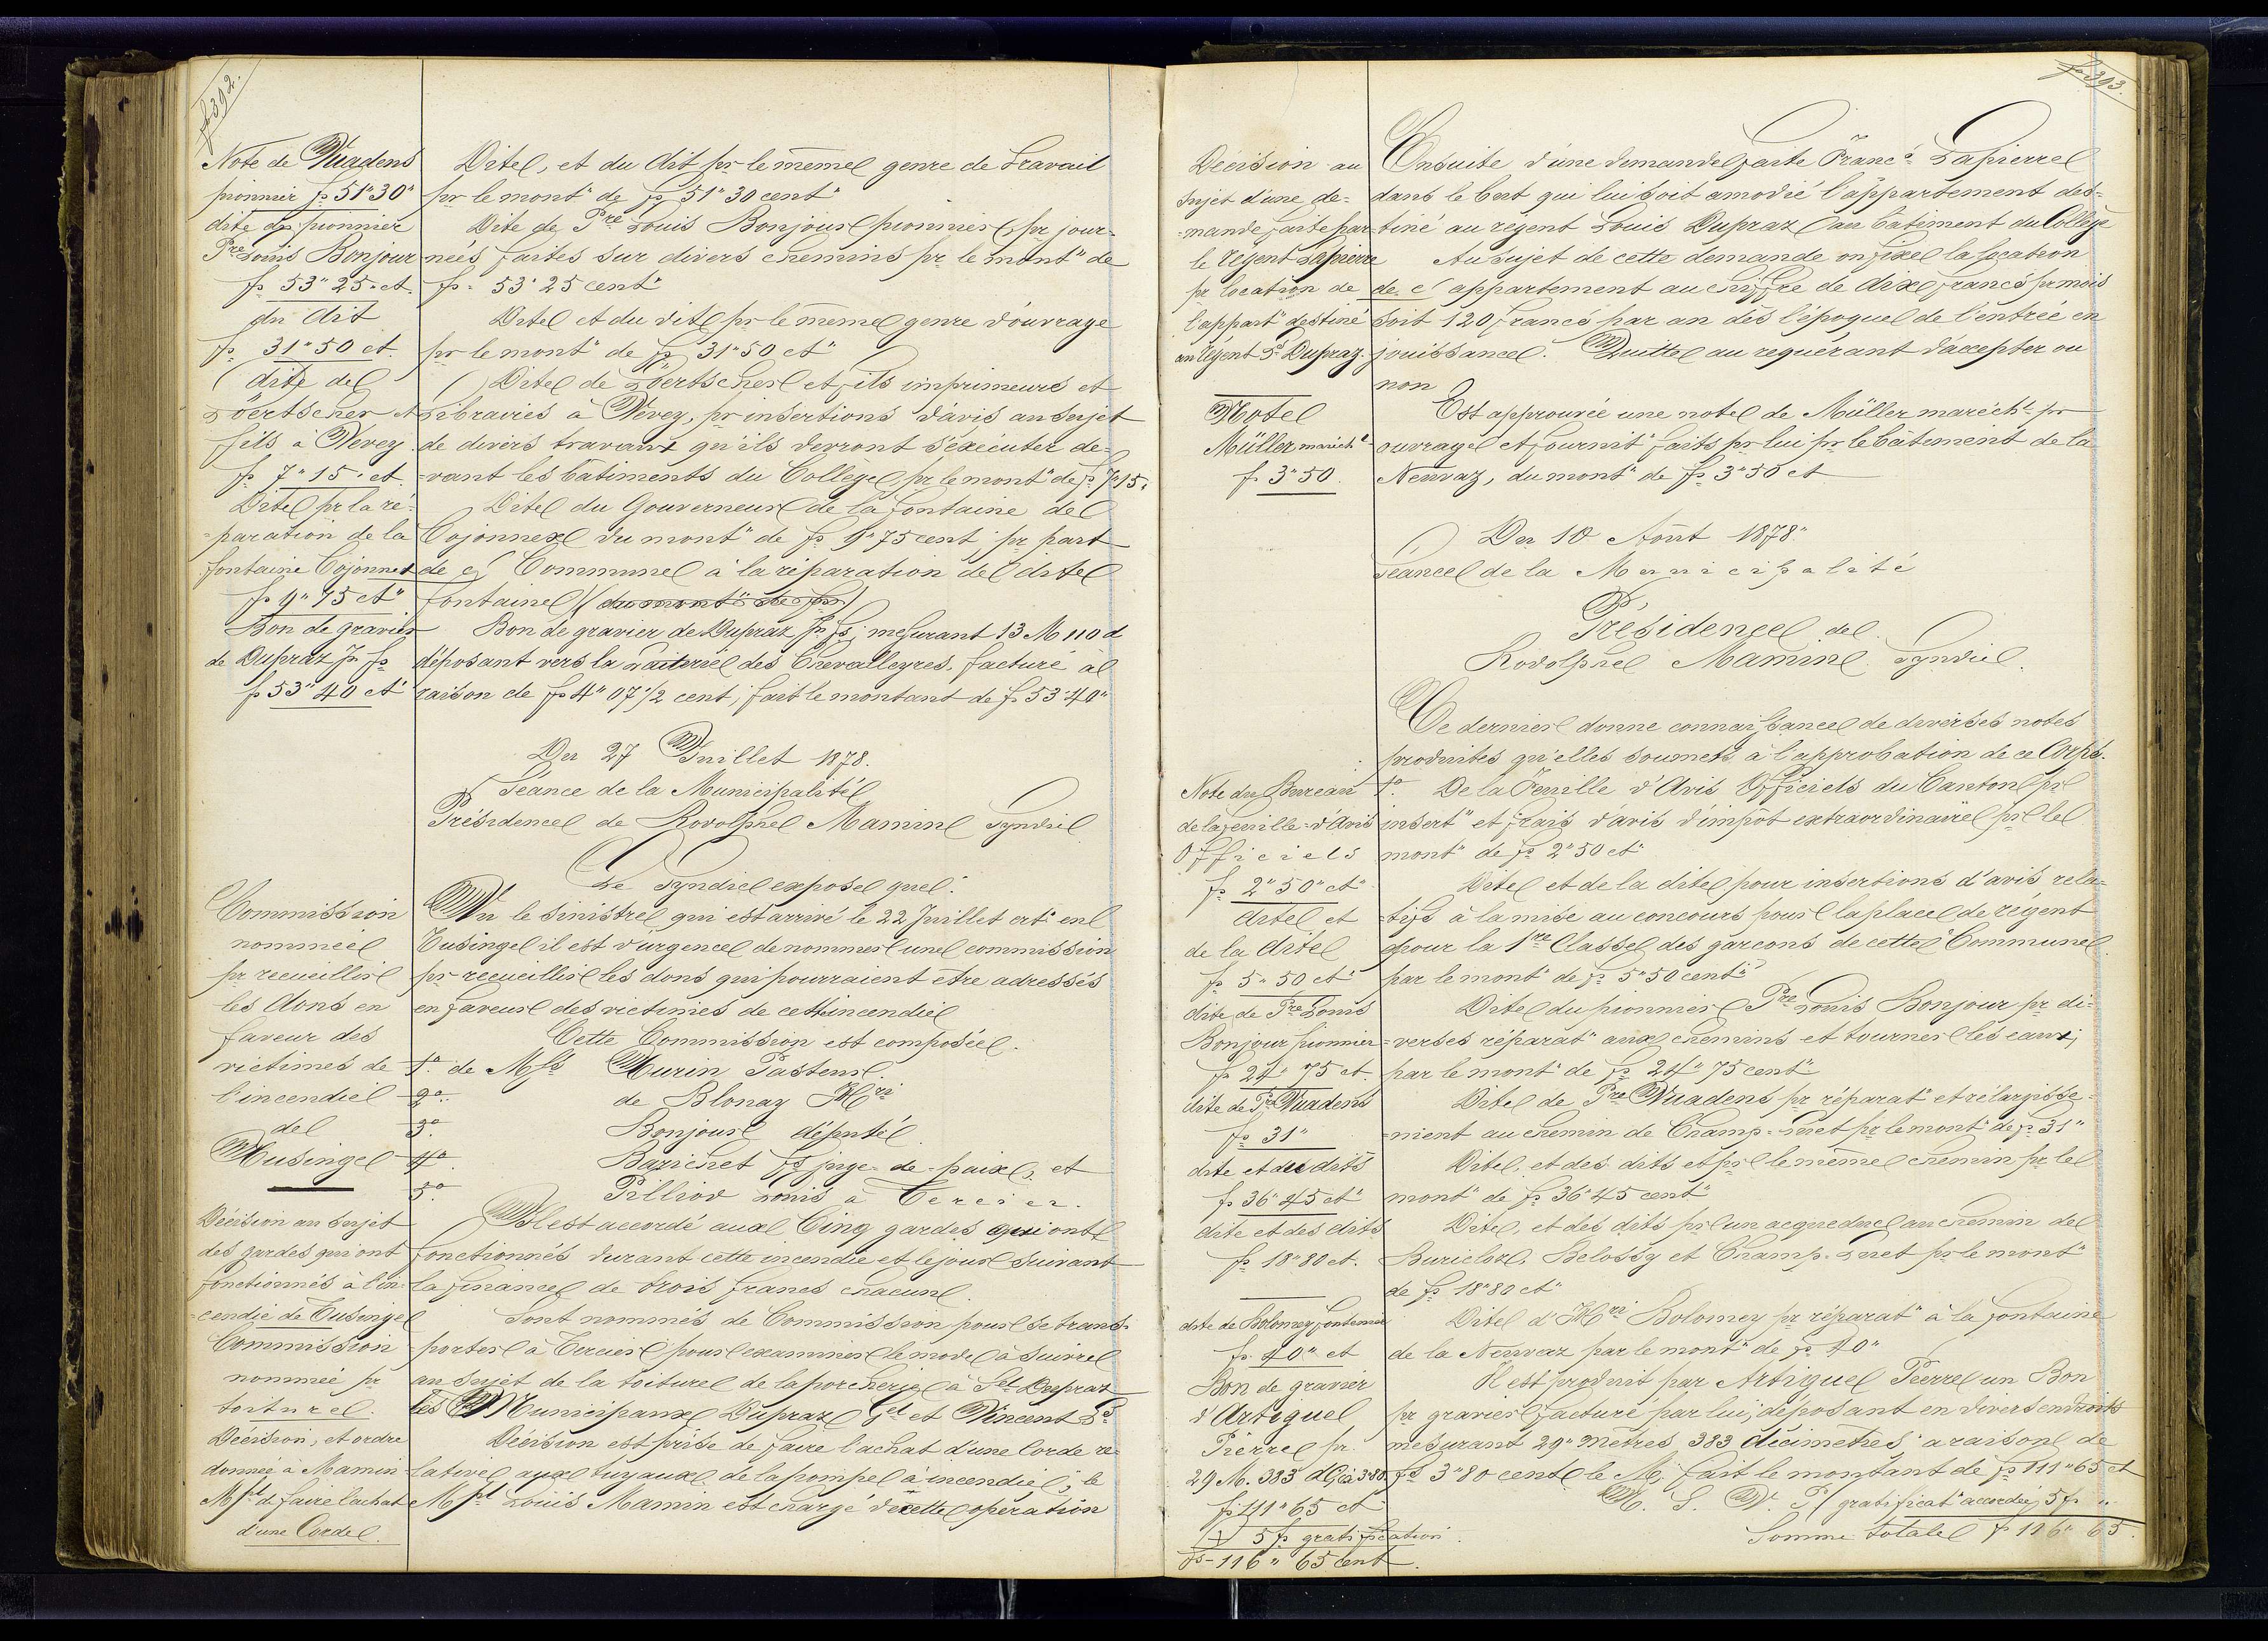 fo 392.
Note de Vuadens
pionnier fs 51" 30"
dite du pionnier
Pre Louis Bonjour
fs 53" 25 ct.
du dit
fs 31" 50 ct.
dite de
Loertscher et
fils à Vevey
fs 7" 15 ct.
Dite pr la ré-
=paration de la
fontaine Cojonnex
fs 9" 75 ct"
Bon de gravier
de Dupraz Jn Fs
fs 53" 40 ct"
Dite, et du dit pr le même genre de travail
pr le mont" de fs 51" 30 cent"
Dite de Pre Louis Bonjour pionnier, pr jour-
nées faites sur divers chemins pr le mont" de
fs 53" 25 cent"
Dite et du dit pr le même genre d'ouvrage
pr le mont" de fs 31" 50 ct"
Dite de Loertscher et fils imprimeurs et
Libraires à Vevey, pr insertions d'avis au sujet
de divers travaux qu'ils devront s'éxécuter de-
=vant les batiments du College pr le mont" de fs 7" 15.
Dite du Gouverneur de la fontaine de
Cojonnex du mont" de fs 9" 75 cent, pr part
de c/ Commune à la réparation de dite
fontaine (du mont" de fs)
Bon de gravier de Dupraz Jn Fs, mesurant 13 M 110 d
déposant vers la Laiterie des Chevalleyres, facturé à
raison de fs 4" 07 1/2 cent, fait le montant de fs 53" 40"
Du 27 Juillet 1878.
Séance de la Municipalité
Présidence de Rodolphe Mamin Syndic
Le Syndic expose que:
Commission
nommée
pr recueillir
les dons en
faveur des
victimes de
l'incendie
de
Tusinge
Vu le sinistre qui est arrivé le 22 Juillet crt" en
Tusinge il est d'urgence de nommer une commission
pr recueillir les dons qui pourraient etre adressés
en faveur des victimes de cet incendie
Cette Commission est composée.
1o. de Mrs Murin Pasteur
2o. de Blonay Hri
3o. Bonjour député
4o. Barichet fs juge-de-paix, et
5o. Pilliod Louis à Tercier.
Décision au sujet
des gardes qui ont
fonctionnés à l'in-
=cendie de Tusinge
Commission
nommée pr
toiture.
Décision, et ordre
donnée à Mamin
Mpl d. faire l'achat
d'une Corde
Il est accordé aux Cinq gardes qui ont
fonctionnés durant cette incendie et le jour suivant
la finance de trois francs chacun.
Sont nommés de Commission pour se trans-
=porter à Tercier pour examiner le mode à suivre
au sujet de la toiture de la porcherie à Sel Dupraz
les Municipaux Dupraz Gel et Vincent Ls
Décision est prise de faire l'achat d'une Corde re-
lative aux tuyaux de la pompe à incendie; le
Mpl Louis Mamin est chargé de cette opération
fo 393.
Décision au
sujet d'une de-
=mande faite par
le régent Lapierre
pr location de
l'appart" destiné
au régent Ls Dupraz.
Note
Müller maréchl
fs 3" 50.
Ensuite d'une demande faite Francs Lapierre
dans le but qui lui soit amodié l'appartement des-
=tiné au régent Louis Dupraz au bâtiment du Collège
Au sujet de cette demande on fixe la location
de c/ appartement au chiffre de dix francs pr mois
soit 120 francs par an dès l'époque de l'entrée en
jouissance. Quitte au requérant d'accepter ou
non
Est approuvée une note de Müller maréchl pr
ouvrage et fournit" faits pr lui pr le bâtement de la
Neuvaz, du mont" de fs 3" 50 ct
Du 10 Août 1878"
Séance de la Municipalité
Présidence de
Rodolphe Mamin Syndic.
Ce dernier donne connaissance de diverses notes
produites qu'elles soumet à l'approbation de ce Corps.
Note du Bureau
de la feuille d'Avis
Officiels
fs 2" 50" ct"
dite et
de la dite
fs 5" 50 ct"
dite de Pre Louis
Bonjour pionnier
fs 24" 75 ct.
dite de Pre Vuadens
fs 31"
dite et des dits
fs 36" 45 ct"
dite et des dits
fs 18" 80 ct.
dite de Bolomey fontenier
fs 40" ct
Bon de gravier
d'Artigue
Pierre pr
29 M. 383 d/ à 3"80
fs 111" 65 ct
5 fs gratification
fs 116" 65 cent.
1o. De la Feuille d'Avis Officiels du Canton pr
insert" et frais d'avis d'impôt extraordinaire pr le
mont" de fs 2" 50 ct"
Dite et de la dite pour insertions d'avis rela-
=tifs à la mise au concours pour la place de regent
pour la 1re Classe des garcons de cette Commune
par le mont" de fs 5" 50 cent"
Dite du pionnier Pre Louis Bonjour pr di-
=verses réparat" aux chemins et tourner les eaux;
par le mont" de fs 24" 75 cent"
Dite de Pre Vuadens pr réparat" et rélargisse-
=ment au chemin de Champ-Luet pr le mont" de fs 31"
Dite, et des dits et pr le même chemin pr le
mont" de fs 36" 45 cent"
Dite, et des dits pr un acqueduc au chemin de
Buricloz, Belossy et Champ-Luet pr le mont"
de fs 18" 80 ct"
Dite d'Hri Bolomey pr réparat" à la fontaine
de la Neuvaz par le mont" de fs 40"
Il est produit par Artigue Pierre un Bon
pr gravier facturé par lui, déposant en divers endroits
mesurant 29" mètres 383 décimetres à raison de
fs 3" 80 cent le M; fait le montant de fs 111" 65 ct
gratificat" accordée 5 fs "
Somme totale fs 116" 65.